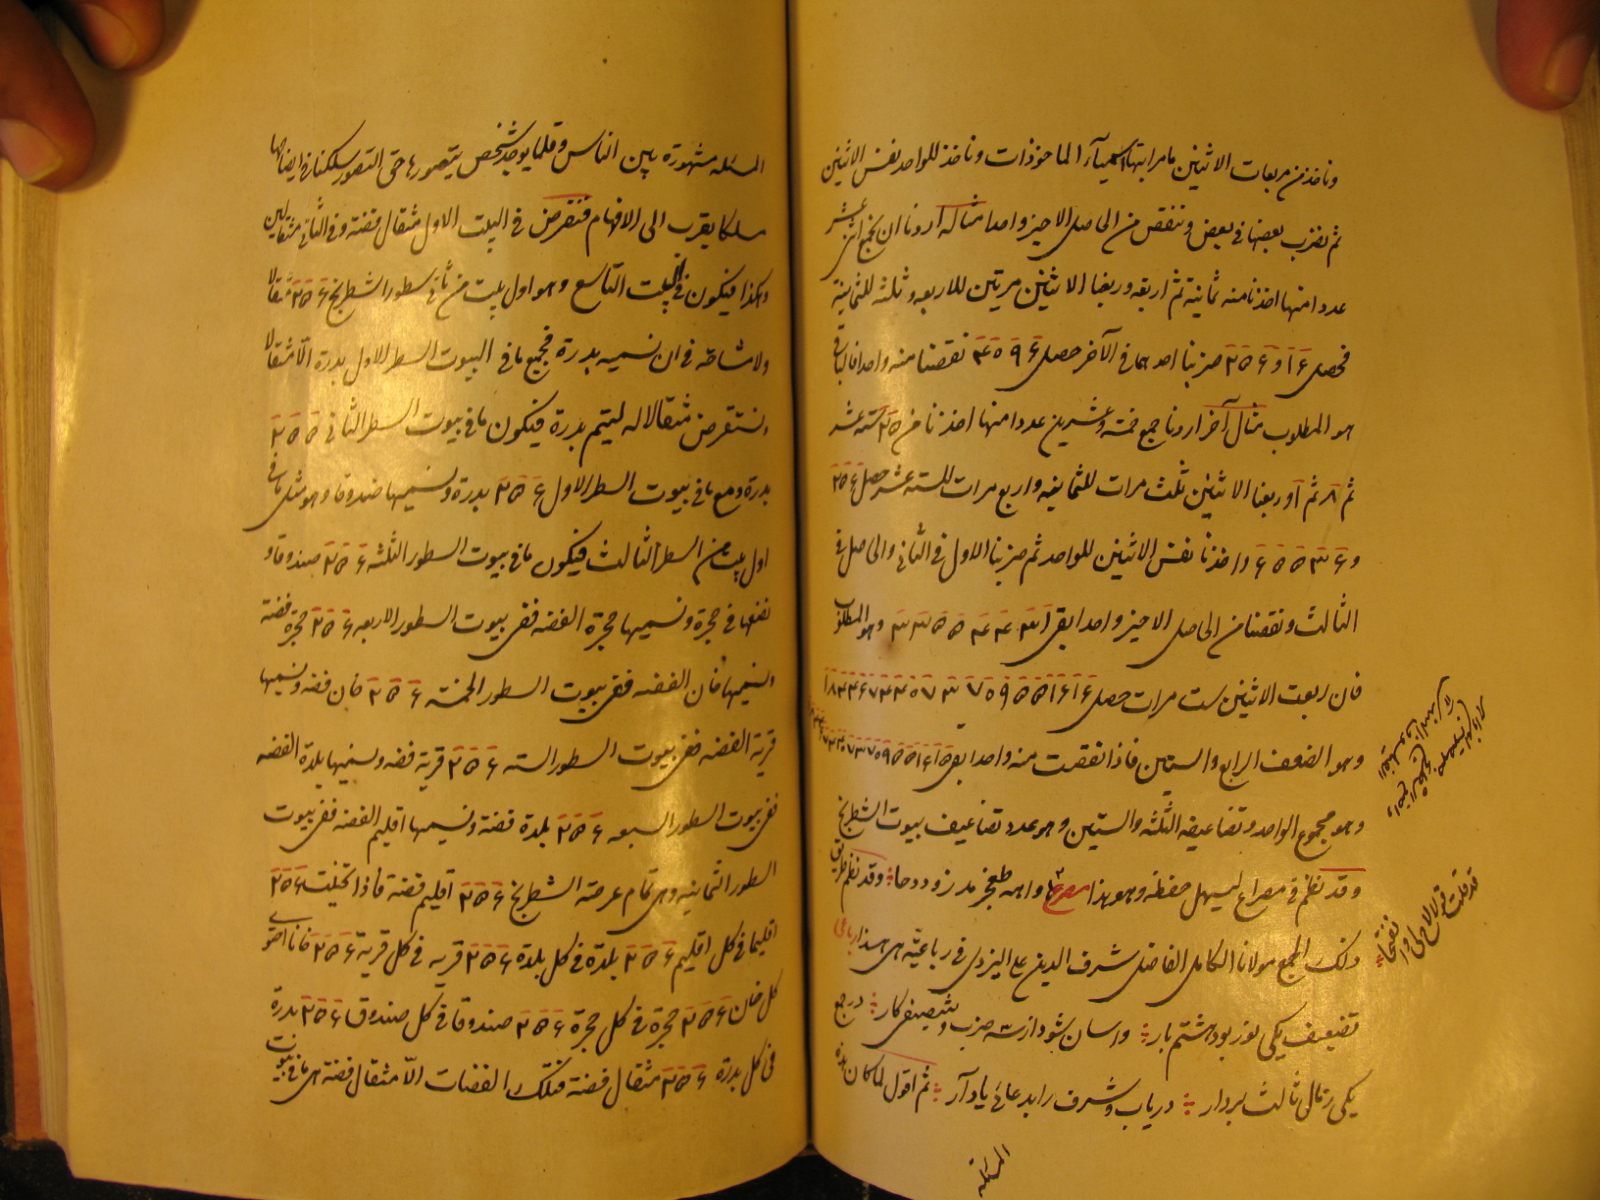 وناخذ من مربعات الاثنين مامراتبها سميات الماخوذات وناخذ للواحد نفس الاثنين
ثم نضرب بعضها في بعض وننقص من الحاصل الاخير واحدا مثاله اردنا ان نجمع اثنى عشر
عددا منها اخذنا منه ثمانية ثم اربعة وربعنا الاثنين مرتين للاربعه وثلثة للثمانية
فحصل ۱۶ و ۲۵۶ ضربنا احدهما في الآخر حصل ۴۰۹۶ نقصنا منه واحدا فالباقي
هو المطلوب مثال آخر اردنا جمع خمسة وعشرين عددا منها اخذنا من ۲۵ ستة عشر
ثم ۸ ثم ۱ وربعنا الاثنين ثلث مرات للثمانية واربع مرات للستة عشر حصل ۲۵۶
و ۶۵۵۳۶ واخذنا نفس الاثنين للواحد ثم ضربنا الاول في الثاني والحاصل في
الثالث ونقصنا من الحاصل الاخير واحدا بقى ۳۳۵۵۴۴۳۱ وهو المطلوب
فان ربعت الاثنين ست مرات حصل ۱۸۴۴۶۷۴۴۰۷۳۷۰۹۵۵۱۶۱۶
وهو الضعف الرابع والستين فاذا نقصت منه واحدا بقى ۱۸۴۴۶۷۴۴۰۷۳۷۰۹۵۵۱۶۱۵
وهو مجموع الواحد وتضاعيفه الثلثه والستين وهو عدد تضاعيف بيوت الشطرنج
وقد نظم في مصراع ليسهل حفظه وهو هذا مصرع واهه طعجز مدزو ددحا وقد نظم طريق
ذلك الجمع مولانا الكامل الفاضل شرف الدين على اليزدى في رباعية هى هذا رباعى
تضعيف يكى نور بود هشتم بار واسان شود از سه ضرب وتنصيفى كار در جمع
يكى زتالى ثالث بردار درياب وشرف رابدعائى ياد آر ثم اقول لما كان هذه
المسئلة
قد قلت قولا لاح لى وانفتحا
المسئله مشهورة بين الناس وقلما يوجد شخص يتصورها حق التصور سلكنا في ايضاحها
مسلكا يقرب الى الافهام فنفرض في البيت الاول مثقال فضة وفي الثاني مثقالين
وهكذا فيكون في البيت التاسع وهو اول بيت من ثاني سطور الشطرنج ۲۵۶ مثقالا
ولا مشاحة في ان نسميه بدرة فجميع ما في البيوت السطر الاول بدرة الّا مثقالا
ونستقرض مثقالا له ليتم بدرة فيكون ما في بيوت السطر الثاني ۲۵۵
بدرة ومع ما في بيوت السطر الاول ۲۵۶ بدرة ونسميها صندوقا وهو مثل ما في
اول بيت من السطر الثالث فيكون ما في بيوت السطور الثلثه ۲۵۶ صندوقا و
نضعها في حجرة ونسميها حجرة الفضه ففي بيوت السطور الاربعه ۲۵۶ حجرة فضة
ونسميها خان الفضه ففي بيوت السطور الخمسة ۲۵۶ خان فضه ونسميها
قرية الفضه ففي بيوت السطور الستة ۲۵۶ قرية فضه ونسميها بلدة الفضه
ففي بيوت السطور السبعه ۲۵۶ بلدة فضة ونسميها اقليم الفضه ففي بيوت
السطور الثمانيه وهى تمام عرصة الشطرنج ۲۵۶ اقليم فضة فاذا تخيلت ۲۵۶
اقليما في كل اقليم ۲۵۶ بلدة في كل بلدة ۲۵۶ قرية في كل قرية ۲۵۶ خانا
كل خان ۲۵۶ حجرة في كل حجرة ۲۵۶ صندوقا في كل صندوق ۲۵۶ بدرة
في كل بدرة ۲۵۶ مثقال فضة فتلك الفضات الّا مثقال فضة هى ما في بيوت